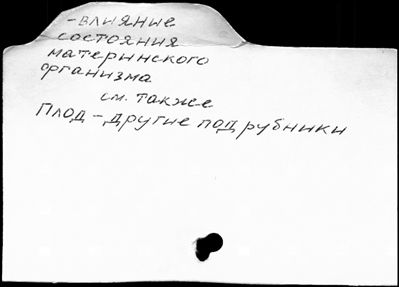 -влияние
состояния
материнского
организма
см. также
Плод - другие подрубрики